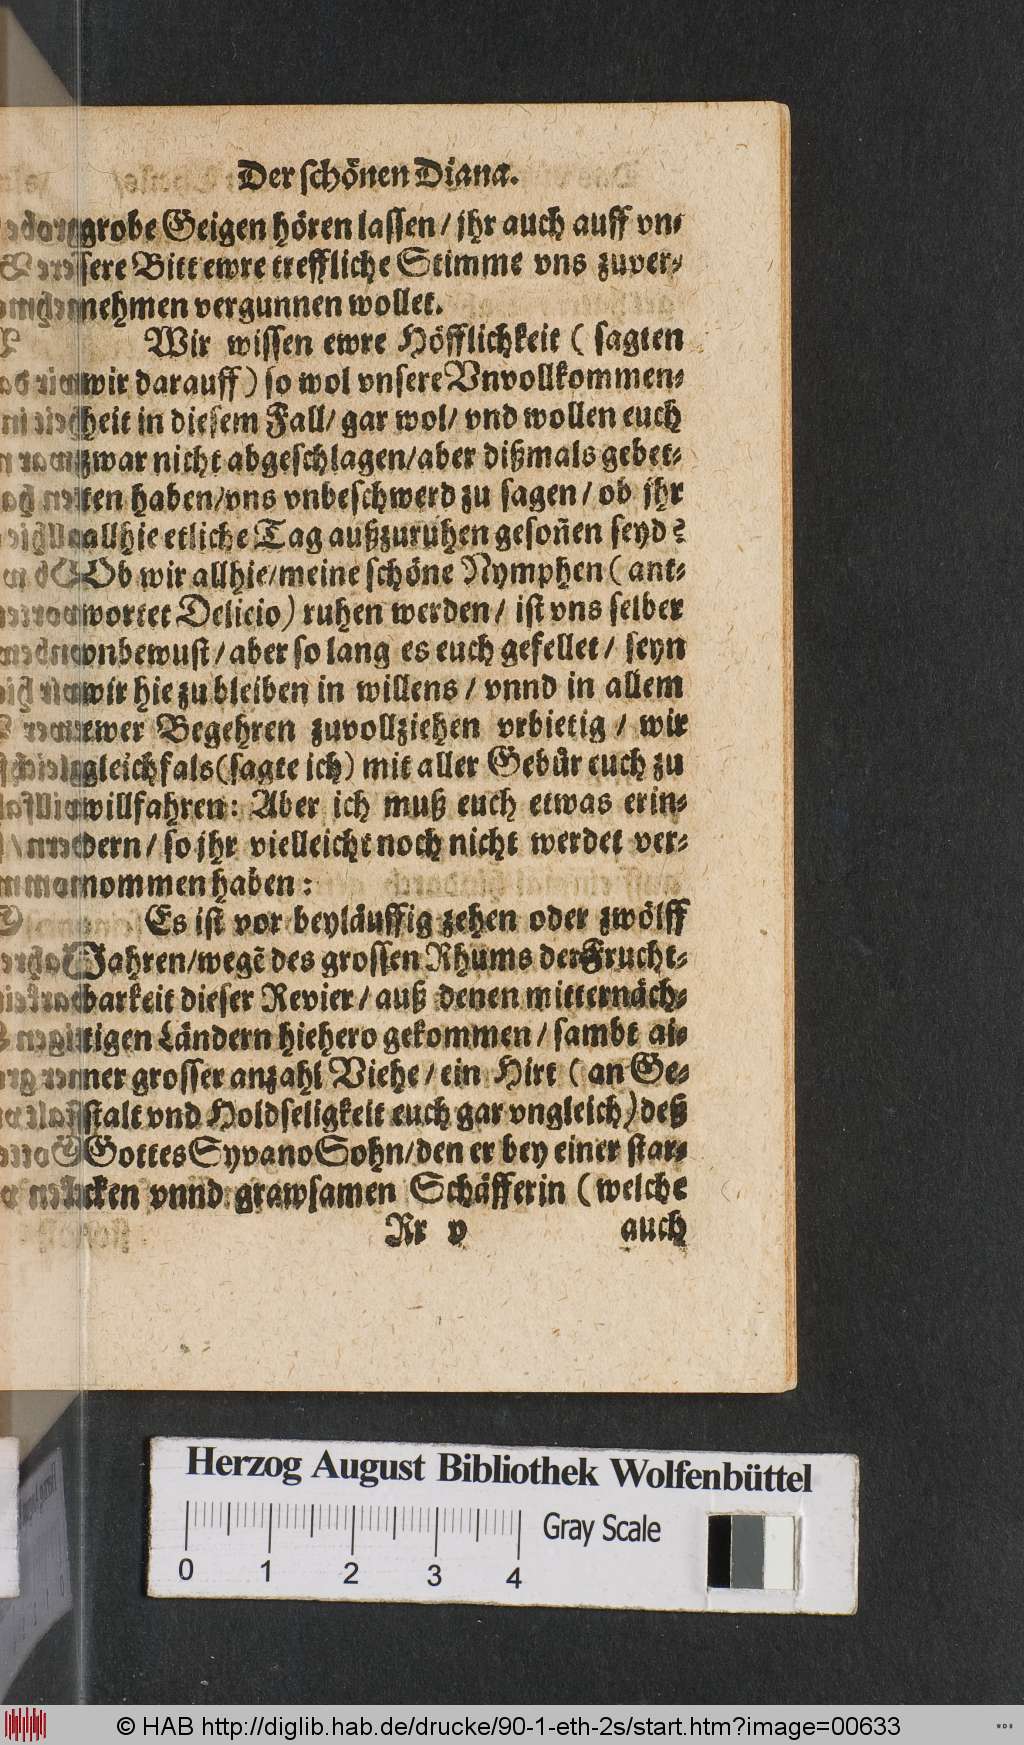 Der schönen Diana.
grobe Geigen hören lassen / jhr auch auff vn⸗
sere Bitt ewre treffliche Stimme vns zuver⸗
nehmen vergunnen wollet.
Wir wissen ewre Höfflichkeit ( sagten
wir darauff) so wol vnsere Vnvollkommen⸗
heit in diesem Fall/ gar wol/ vnd wollen euch
zwar nicht abgeschlagen/aber dißmals gebet⸗
ten haben/vns vnbeschwerd zu sagen / ob jhr
allhie etliche Tag außzuruhen gesoñen seyd?
Ob wir allhie/meine schöne Nymphen ( ant⸗
wortet Delicio) ruhen werden / ist vns selber
vnbewust / aber so lang es euch gefellet / seyn
wir hie zu bleiben in willens / vnnd in allem
ewer Begehren zuvollziehen vrbietig / wir
gleichfals (sagte ich) mit aller Gebür euch zu
willfahren: Aber ich muß euch etwas erin⸗
dern / so jhr vielleicht noch nicht werdet ver⸗
nommen haben :
Es ist vor beyläuffig zehen oder zwölff
Jahren/wegẽ des grossen Rhums der Frucht⸗
barkeit dieser Revier / auß denen mitternäch⸗
tigen Ländern hiehero gekommen / sambt ai⸗
ner grosser anzahl Viehe / ein Hirt ( an Ge⸗
stalt vnd Holdseligkeit euch gar vngleich) deß
Gottes Syvano Sohn/den er bey einer star⸗
cken vnnd grawsamen Schäfferin ( welche
Rr v auch
Herzog August Bibliothek Wolfenbüttel
Gray Scale
0 1 2 3 4
© HAB http://diglib.hab.de/drucke/90-1-eth-2s/start.htm?image=00633